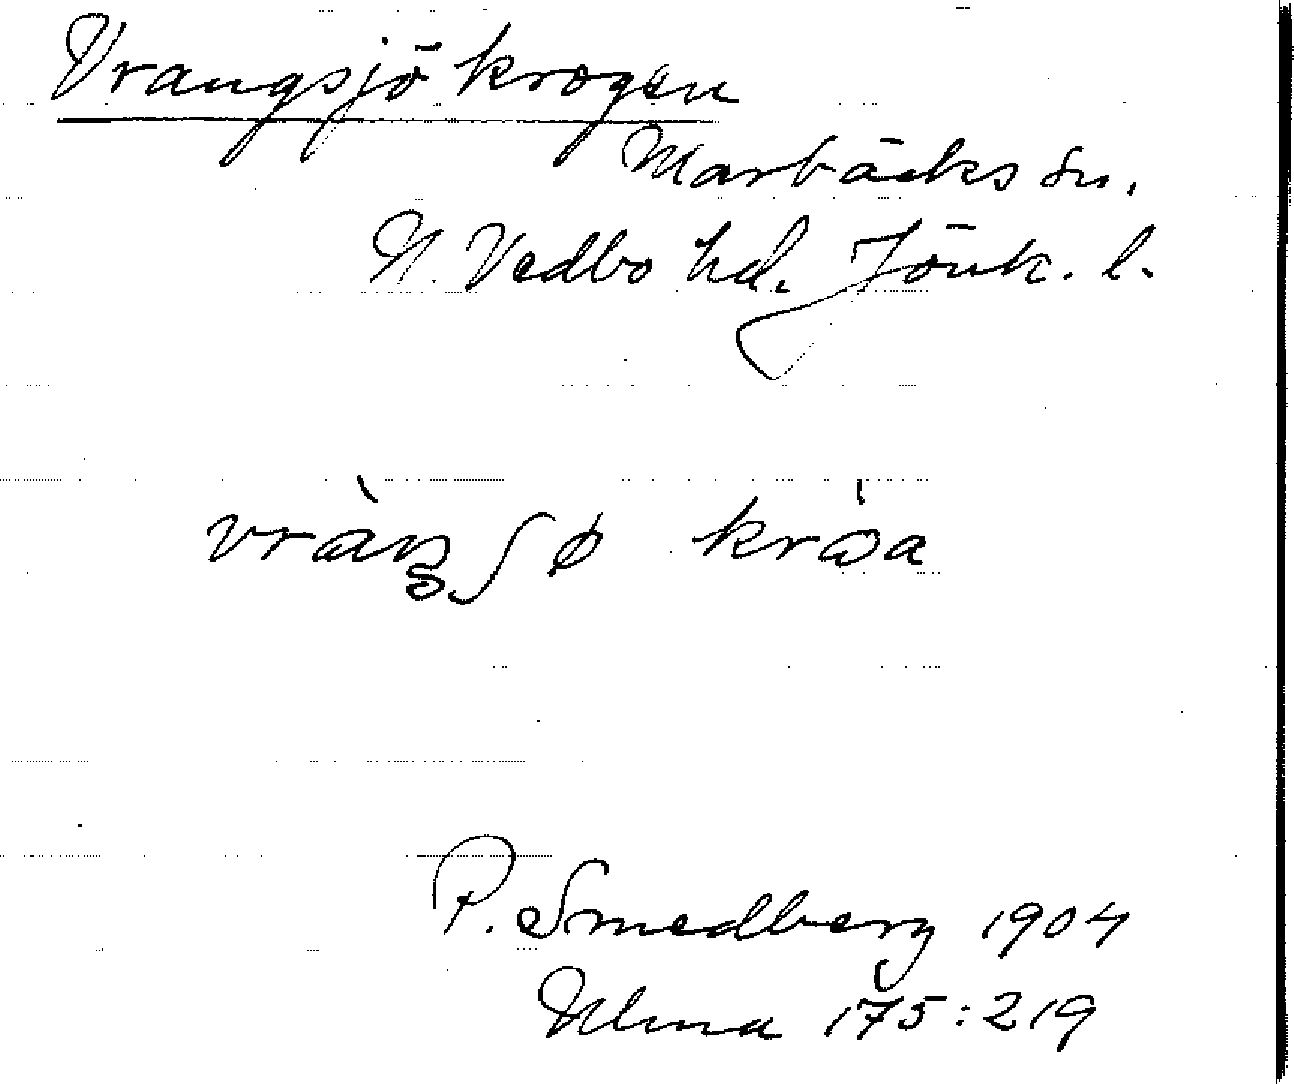 Vrangsjökrogen
Marbäcks sn.
N. Vedbo hd. Jönk. l.
P. Smedberg 1904
Ulma 175:219